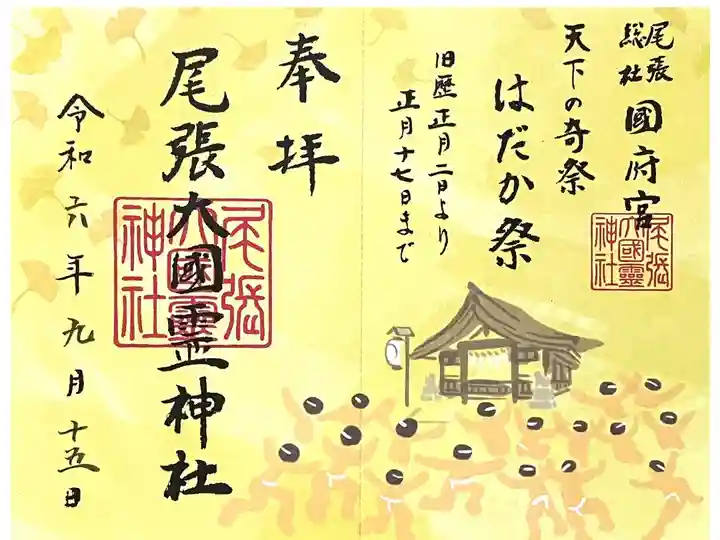 尾張
総社
國府宮
天下の奇祭
はだか祭
旧歴正月二日より
正月十七日まで
尾張
大國霊
神社
奉拝
尾張大國霊神社
尾張
大國霊
神社
令和六年九月十五日